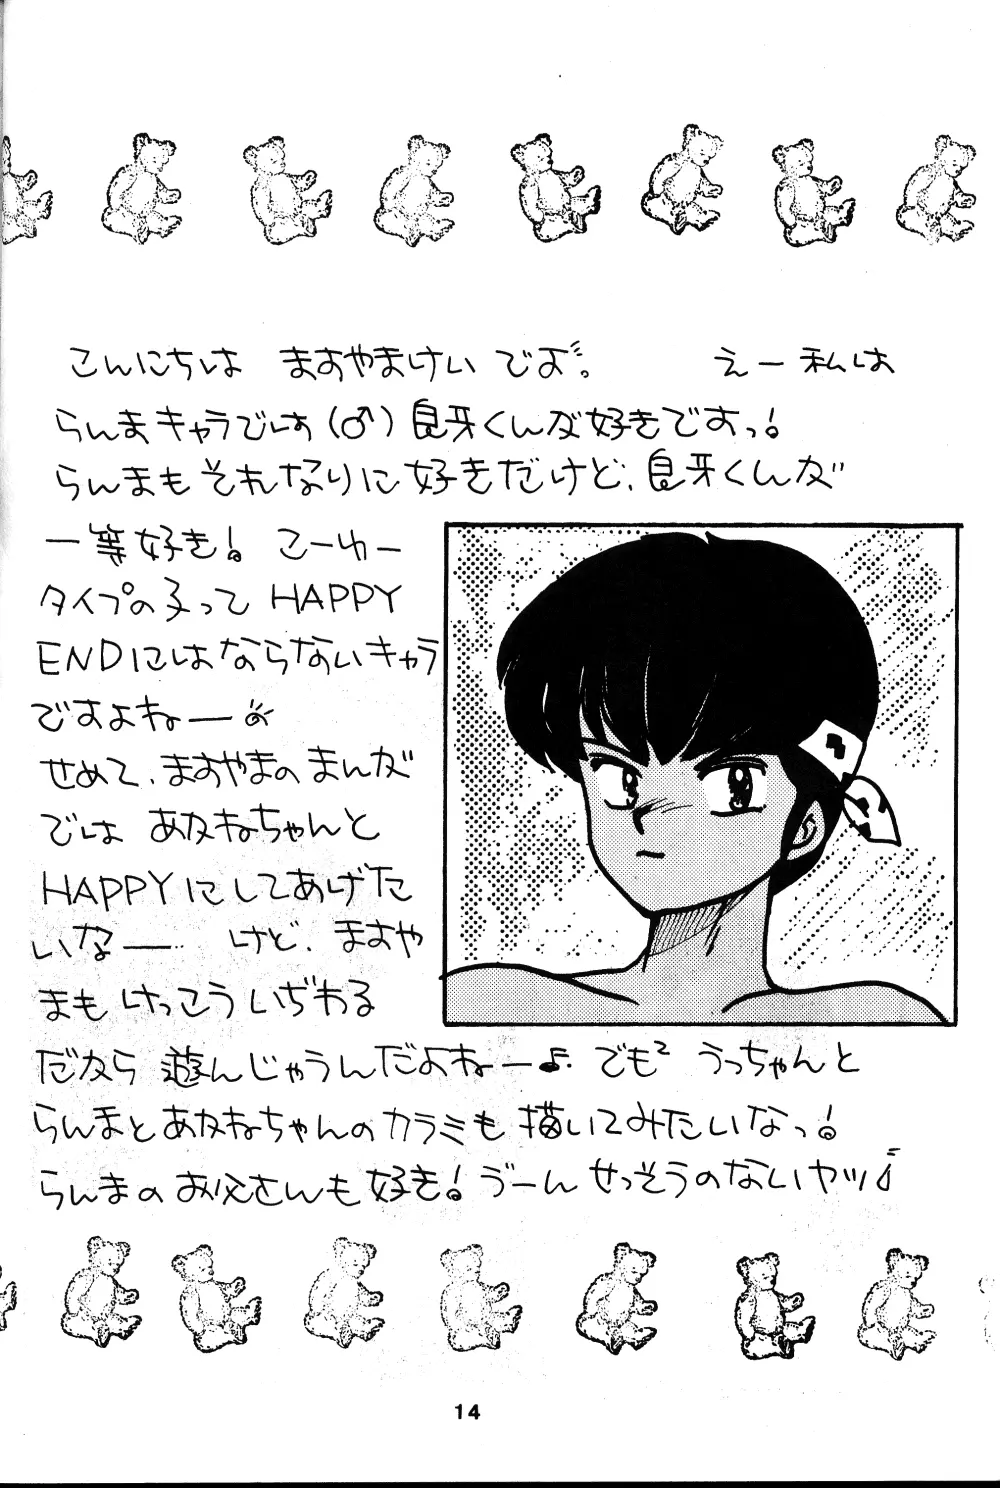 こんにちは ますやまけい でよ。 えー私は
らんまキャラでは(♂)良牙くんが好きですっ!
らんまもそれなりに好きだけど、良牙くんが
一等好き! こーゆー
タイプの子って HAPPY
ENDにはならないキャラ
ですよねー
せめて、ますやまのまんが
では あかねちゃんと
HAPPYにしてあげた
いなー けど、ますや
まも けっこう いぢわる
だから 遊んじゃうんだよねー♪ でも² うっちゃんと
らんまとあかねちゃんのカラミも描いてみたいなっ!
らんまのお父さんも好き! ゔーん せっそうのないヤツ♪
14